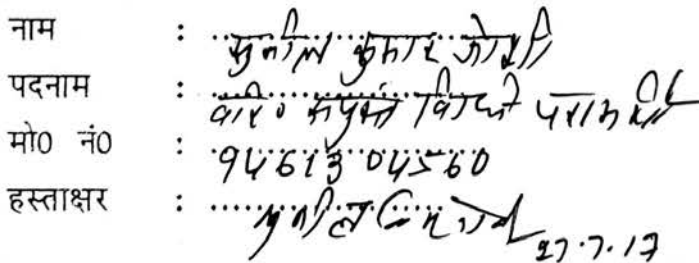 नाम : सुनील कुमार जोशी
पदनाम : वरि० संयुक्त विधि परामर्शी
मो0 नं0 : 9461304560
हस्ताक्षर : सुनील 27.7.17